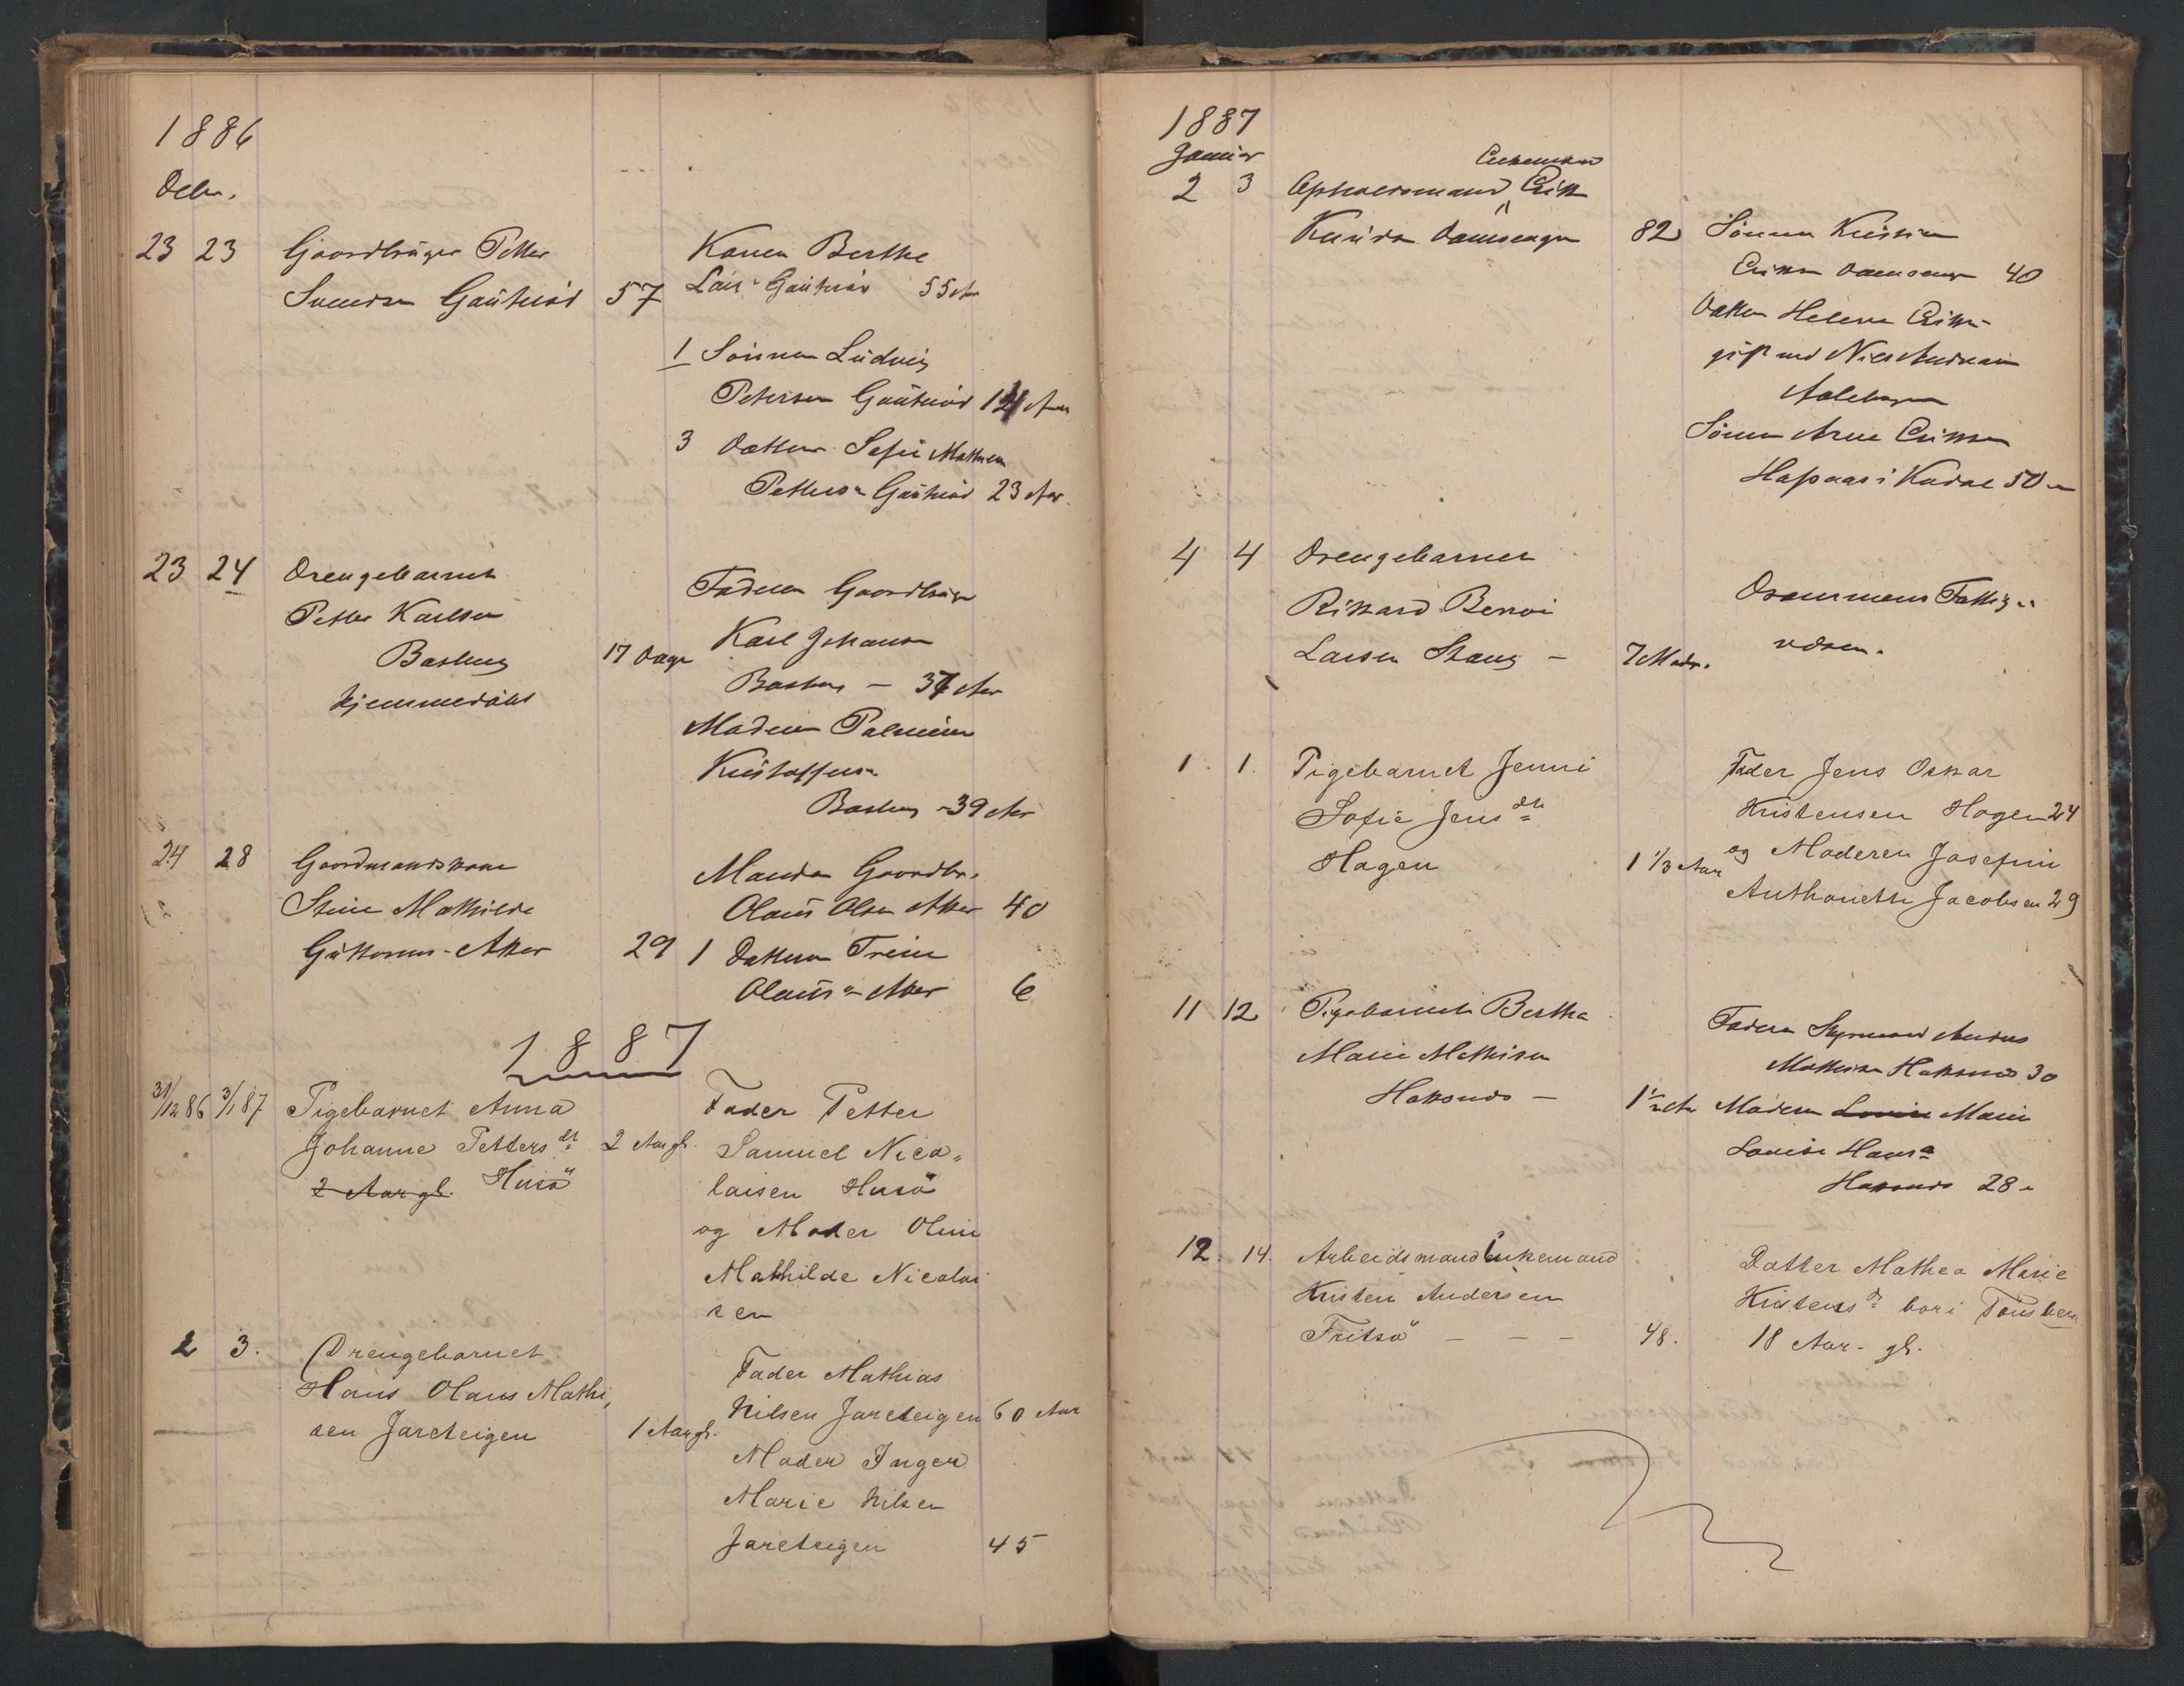 1886
Debr.
23 23 Gaardbruger Petter
Svendsen Gautesrød 57
Konen Berthe
Lars Gautesrød 55 Aar
1 Sønnen Ludvig
Petersen Gautesrød 14 Aar
3 Datteren Sofie
Petters Gautesrød 23 Aar
23 24 Drengebarnet
Petter Karlsen
17 Dage
hjemmedøbt
Faderen Gaardbruger
Karl Johansen
37 Aar
Moderen
Kristoffersen
39 Aar
24 28 Gaardmandskone
Stine Mathilde
Guttorms- Aker 29
Manden Gaardbr.
Olaus Olsen Aker 40
1 Datteren Trine
Olaus Aker 6
1887
31/12 86 3/1 87 Pigebarnet Anna
Johanne Petters dt 2 Aar gl.
2 Aar gl. Husö
Fader Petter
Samuel Nico„
laisen Husö
og Moder Oline
Mathilde Nicolai
sen
2 3. Drengebarnet
Hans Olaus Mathi„
sen Jareteigen 1 Aar gl.
Fader Mathias
Nilsen Jareteigen 60 Aar
Moder Inger
Marie Nilsen
Jareteigen 45
1887
Januar
Enkemand
2 3 Opholdsmand Erik
82
Sønnen Kristian
Eriksen 40
Datter Helene Eriks-
gift med Nils Andreasen
Sønnen Arne Eriksen
i Kodal 50
4 4 Drengebarnet
Rikard Bernoi
Larsen Stang – 7 Madr.
Drammens Fattig„
væsen.
1 1. Pigebarnet Jenni
Sofie Jens dtr
Hagen 1 1/3 Aar
Fader Jens Oskar
Kristensen Hagen 24
og Moderen Josefine
Anthonette Jacobsen 29
11 12 Pigebarnet Bertha
Marie Mathisen
Haksunds – 1 1/2 Aar
Faderen Styrmand Anders
Mathisen Haksunds 30
Moderen Louise Marie
Louise Hans
Haksunds 28
12. 14. Arbeidsmand Enkemand
Kristen Andersen
Fritsö – – – 48.
Datter Mathea Marie
Kristens d. bor i Tönsberg
18 Aar gl.